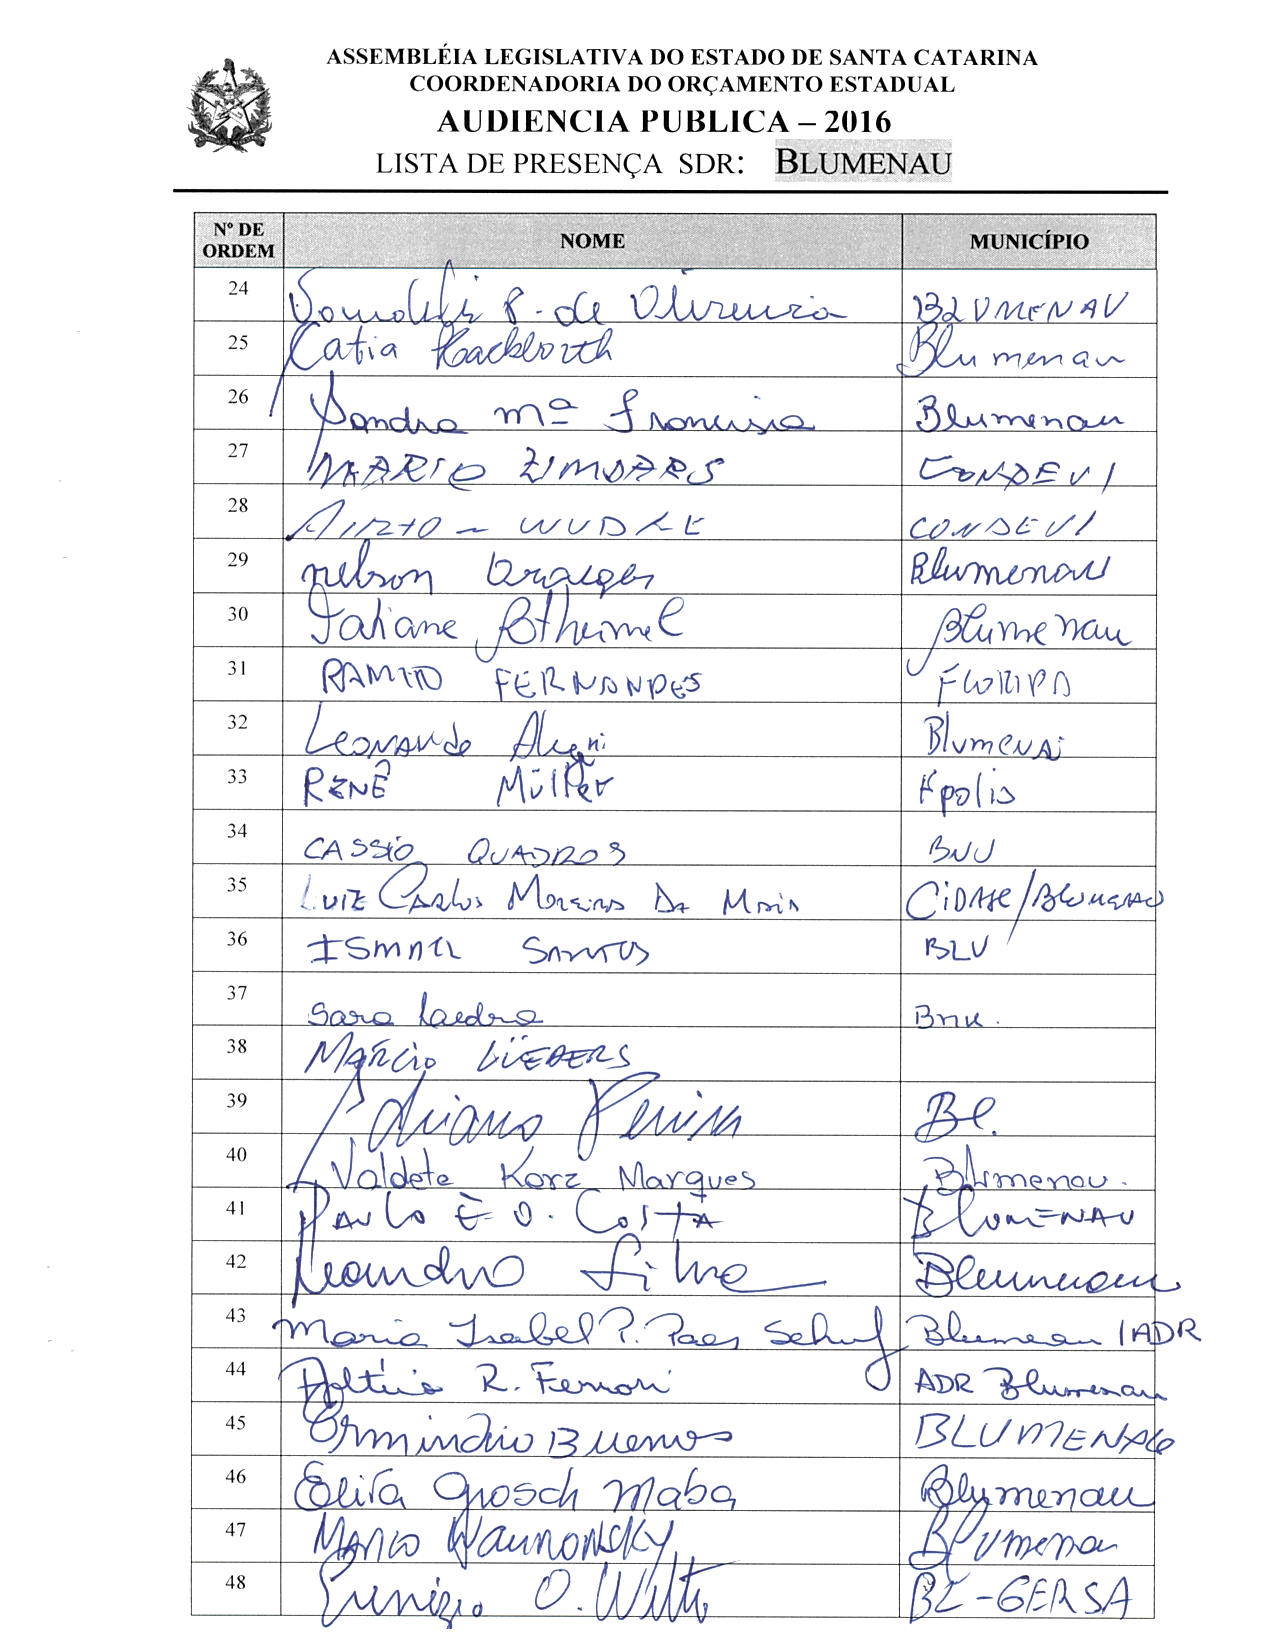 ASSEMBLÉIA LEGISLATIVA DO ESTADO DE SANTA CATARINA
COORDENADORIA DO ORÇAMENTO ESTADUAL
AUDIENCIA PUBLICA – 2016
LISTA DE PRESENÇA SDR: BLUMENAU
Nº DE ORDEM NOME MUNICÍPIO
24 de Oliveira BLUMENAU
25 Catia Hackbarth Blumenau
26 Sandra Mª Francisco Blumenau
27 MARIO ZIMDARS CONDEVI
28 AIRTO CONDEVI
29 Nelson Blumenau
30 Tatiane Blumenau
31 RAMIRO FERNANDES FLORIPA
32 Leonardo Alegri Blumenau
33 RENÊ Müller Fpolis
34 CASSIO QUADROS BNU
35 LUIZ Carlos Moreira Da Maia CIDADE/BLUMENAU
36 ISMAEL SANTOS BLU
37 Sara Bnu.
38 MÁRCIO
39 Adriano Pereira Bl.
40 Valdete Korz Marques Blumenau.
41 PAULO E. O. COSTA BLUMENAU
42 Leandro Silva Blumenau
43 Maria Isabel P. Paes Blumenau/ADR
44 R. Ferrari ADR Blumenau
45 Ormindio Buenos BLUMENAU
46 Elira Grosch Maba Blumenau
47 Marco Wanrowsky Blumenau
48 O. Witte BL-GERSA